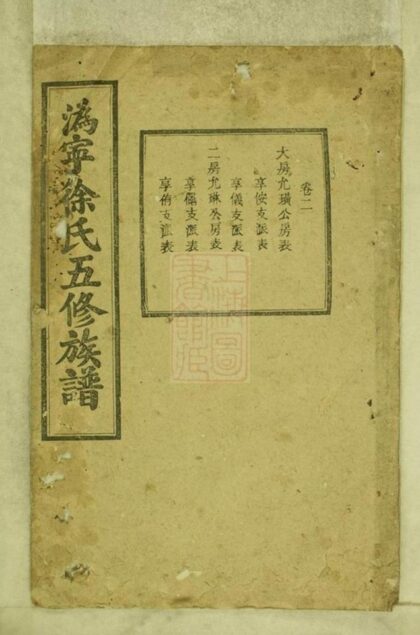 溈寧徐氏五修族譜
卷二
大房允璜公房表
享侒支派表
享儀支派表
二房允琳公房表
享儼支派表
享侑支派表
上海圖
書館藏